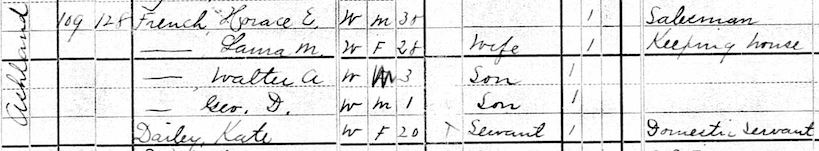 Ashland
109 128 French, Horace E. W M 38 1 Salesman
— Laura M. W F 28 Wife 1 Keeping house
— Walter A W M 3 Son 1
— Geo. D. W M 1 Son 1
Dailey, Kate W F 20 Servant 1 Domestic Servant